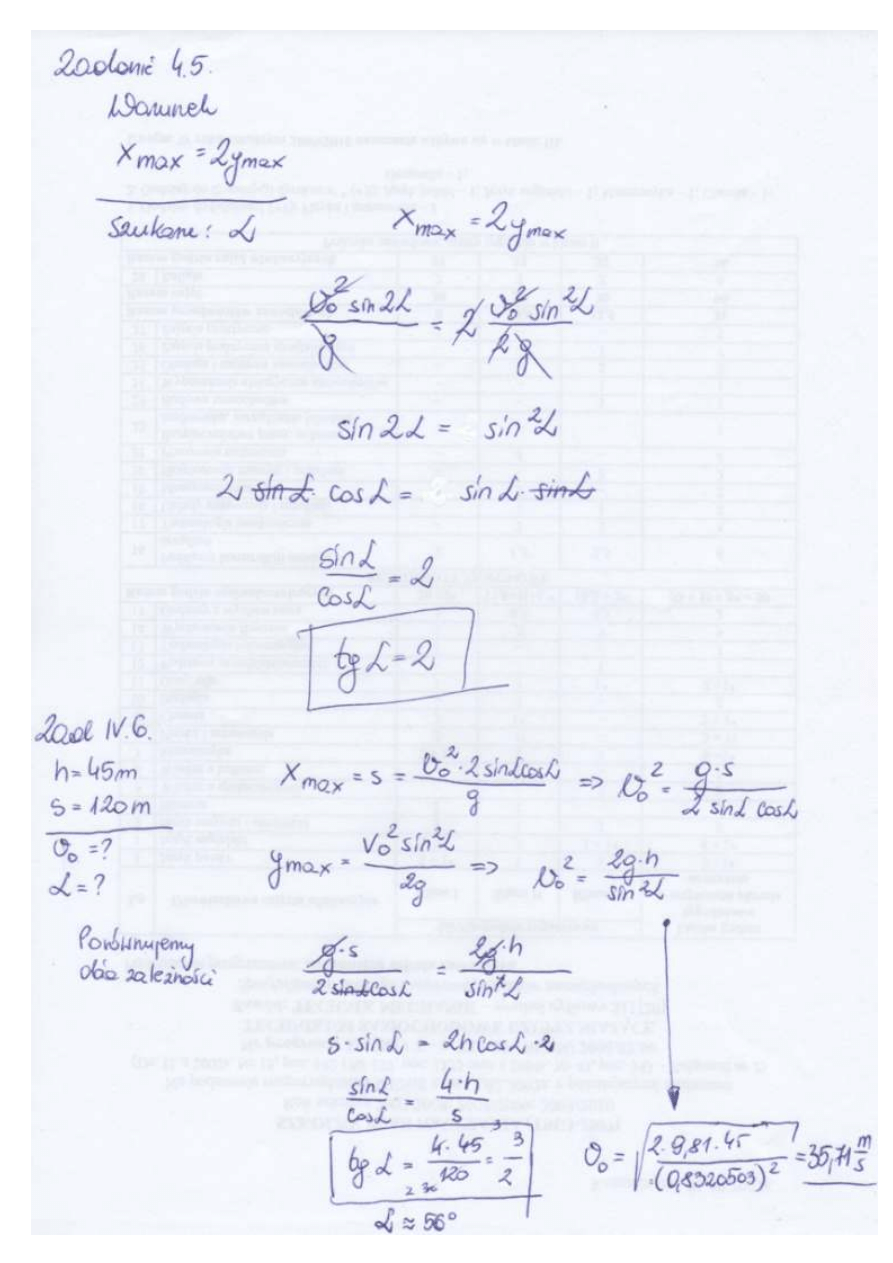 Zadanie 4.5.
Warunek
x max = 2y max
Szukane: α
x max = 2 y max
v₀² sin 2α / g = 2 v₀² sin²α / 2g
sin 2α = sin²α
2 sin α · cos α = sin α · sin α
sin α / cos α = 2
tg α = 2
Zad IV.6.
h = 45m
s = 120m
v₀ = ?
α = ?
x max = s = v₀² · 2 sinα cosα / g => v₀² = g·s / 2 sinα cosα
y max = v₀² sin²α / 2g => v₀² = 2g·h / sin²α
Porównujemy
obie zależności
g·s / 2 sinα cosα = 2g·h / sin²α
s · sin α = 2h cos α · 2
sin α / cos α = 4·h / s
tg α = 4·45 / 120 = 3 / 2
α ≈ 56°
v₀ = √(2·9,81·45 / (0,8320503)²) = 35,71 m/s